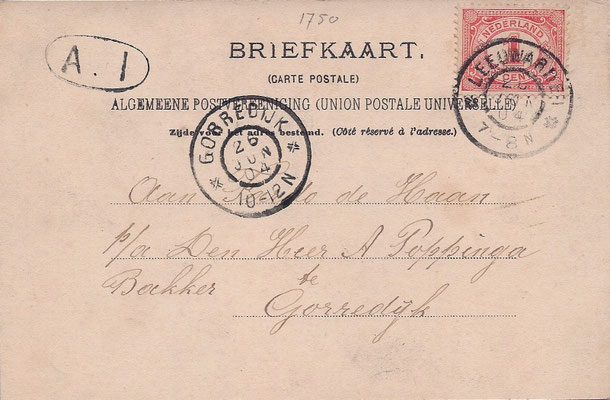 1750
A. 1
BRIEFKAART.
(CARTE POSTALE)
ALGEMEENE POSTVEREENIGING (UNION POSTALE UNIVERSELLE)
Zijde voor het adres bestemd. (Côté réservé à l'adresse.)
NEDERLAND
1
CENT
LEEUWARDEN
26
JUN
04
7-8N
GORREDIJK
26
JUN
04
10-12N
Aan de Haan
p/a Den Heer A Poppinga
Bakker te
Gorredijk